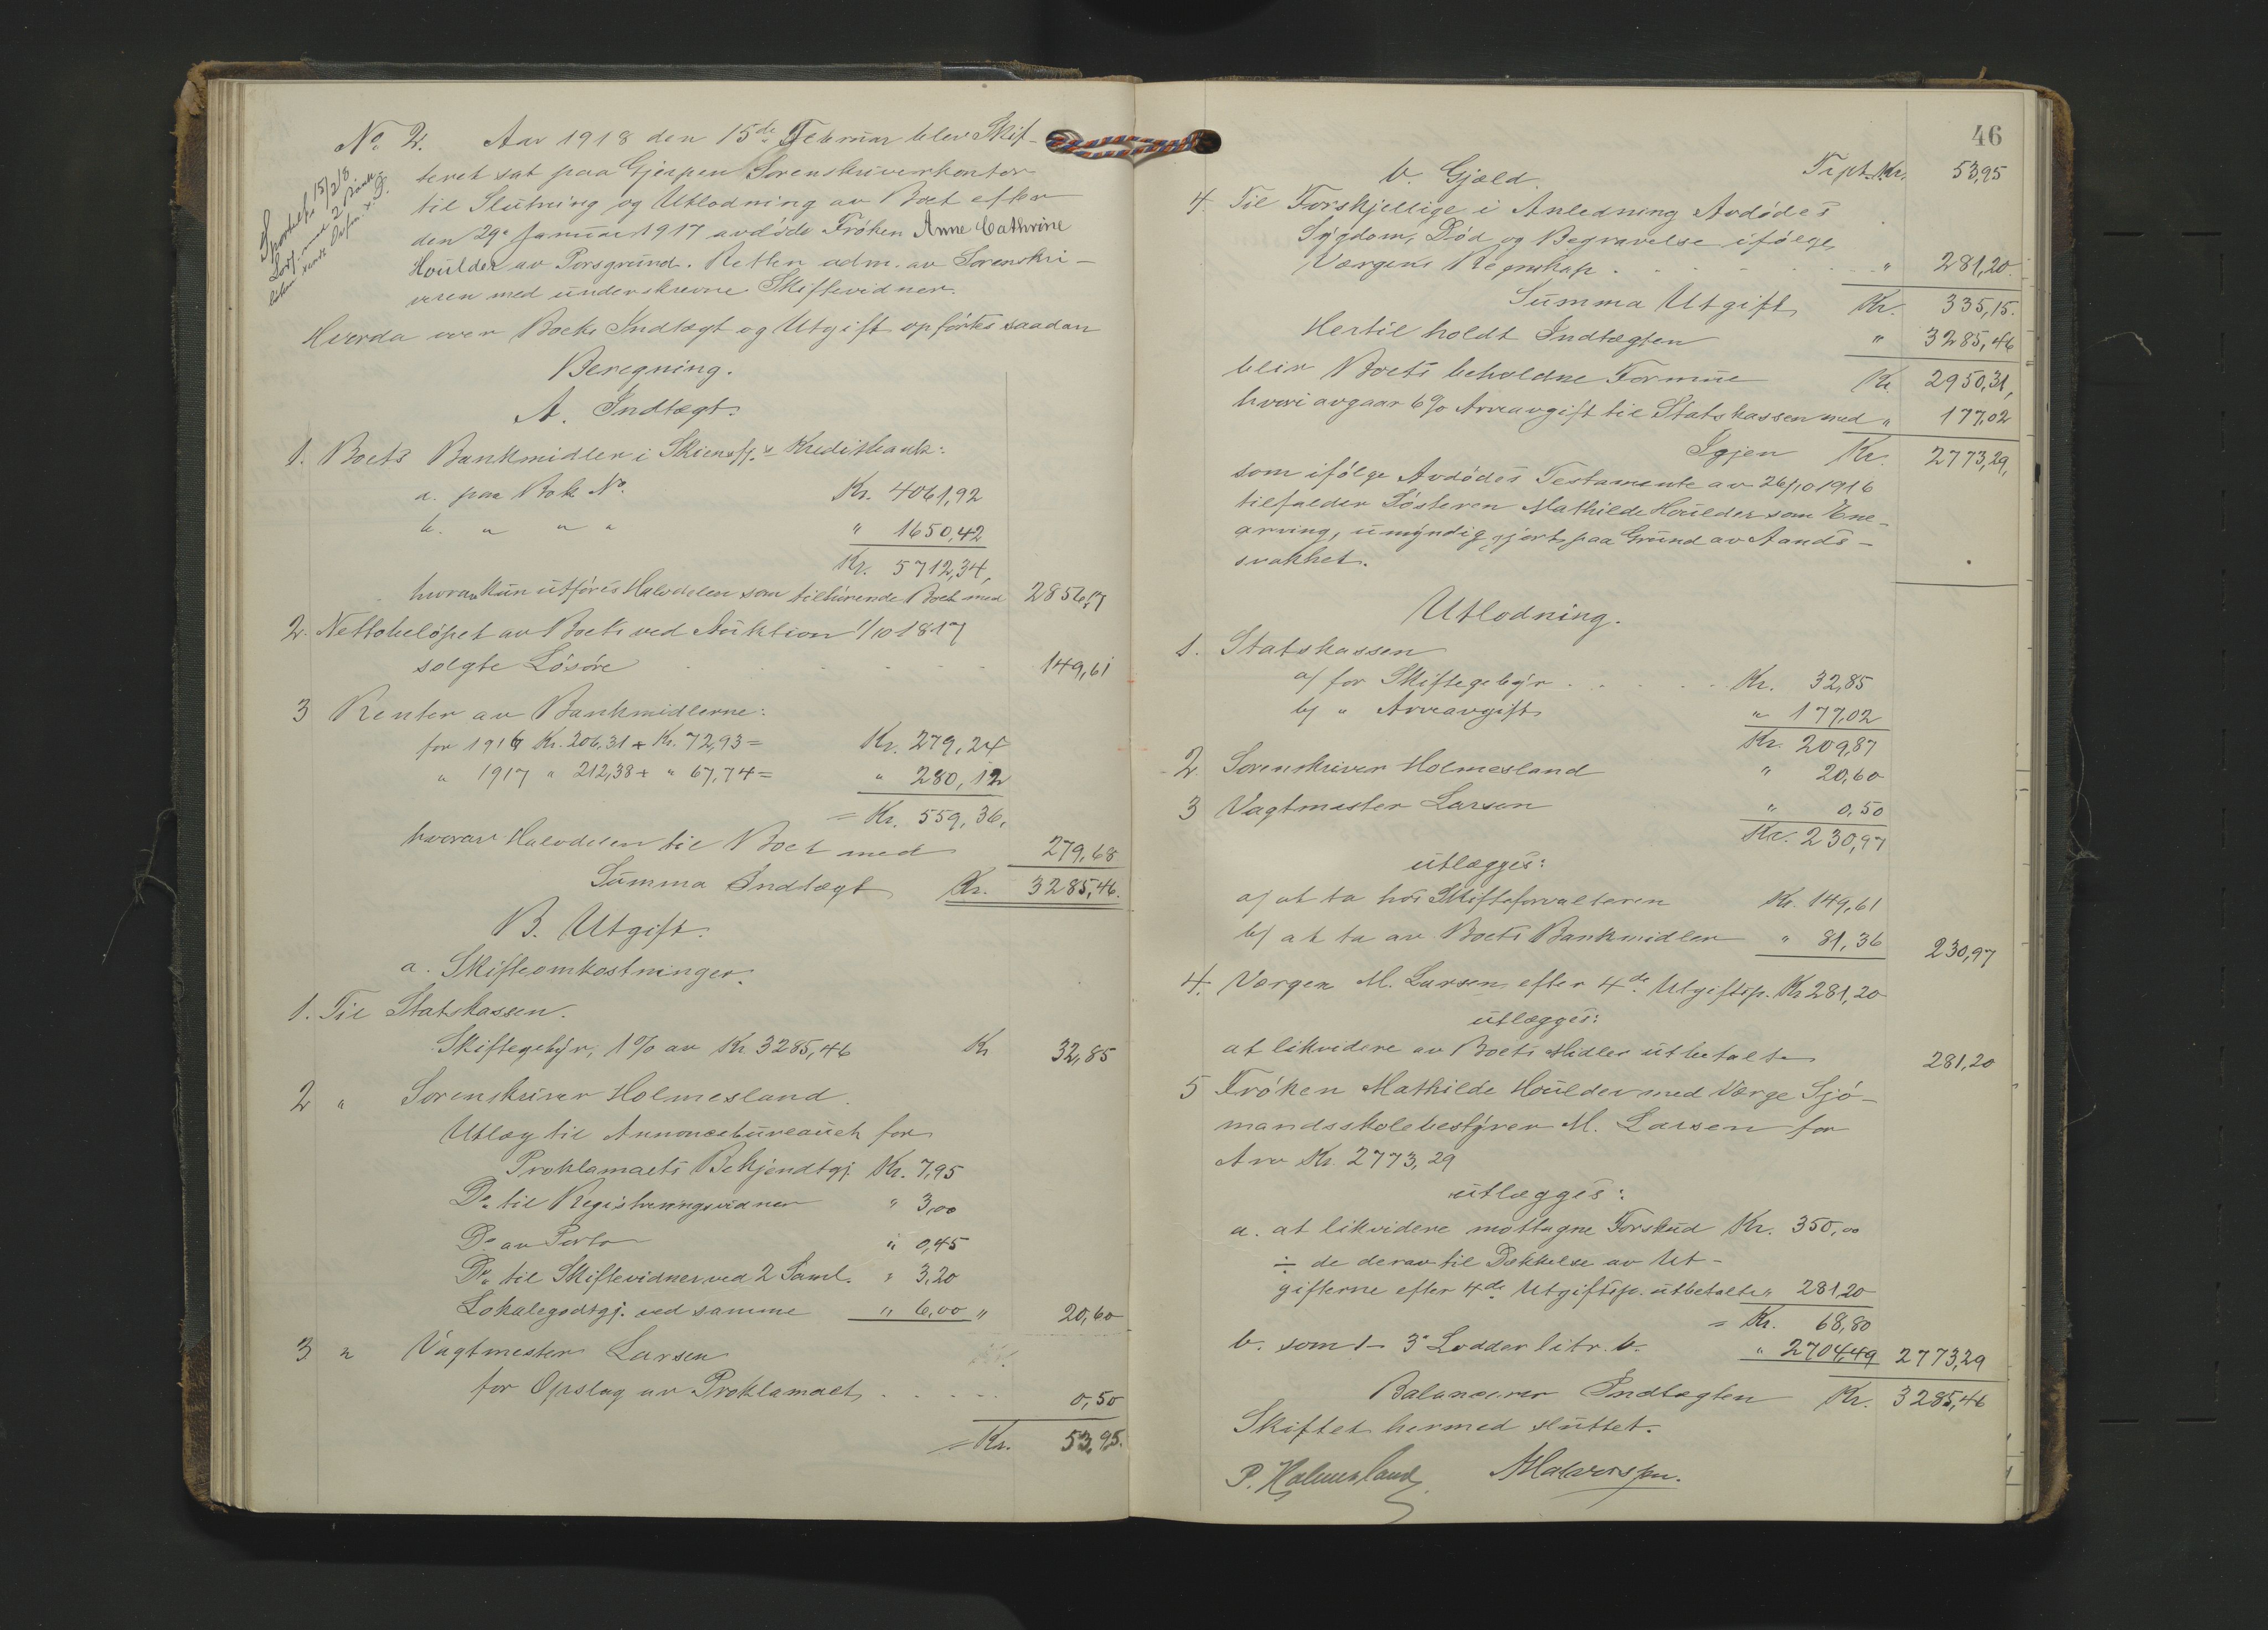 No. 2. Aar 1918 den 15de Februar blev Skif-
teret sat paa Gjerpen Sorenskriverkontor
til Slutning og Utlodning av Boet efter
den 29. Januar 1917 avdöde Fröken Anne Cathrine
Houlder av Porsgrund. Retten adm. av Sorenskri-
veren med underskrevne Skiftevidner.
Hverda over Boets Indtægt og Utgift opförtes saadan
Beregning.
A. Indtægt.
1. Boets Bankmidler i Skiensfj.s Kreditbank:
a. paa Bok No. Kr. 4061,92
b. " " " " 1650,42
Kr. 5712,34,
hvorav kun utföres Halvdelen som tilhörende Boet med 2856,17
2. Nettobelöpet av Boets ved Auktion 1/10 1817
solgte Lösöre 149,61
3 Renter av Bankmidlerne:
for 1916 Kr. 206,31 + Kr. 72,93 = Kr. 279,24
" 1917 " 212,38 + " 67,74 = " 280,12
= Kr. 559,36.
hvorav Halvdelen til Boet med 279,68
Summa Indtægt Kr. 3285,46.
B. Utgift.
a. Skifteomkostninger.
1. Til Statskassen.
Skiftegebyr, 1% av Kr. 3285,46 Kr 32,85
2 " Sorenskriver Holmesland.
Utlæg til Annoncebureauet for
Proklamaets Bekjendtgj. Kr. 7,95
Do. til Registreringsvidner " 3,00
Do. av Porto " 0,45
Do. til Skiftevidner ved 2 Saml. " 3,20
Lokalegodtgj. ved samme " 6,00 " 20,60
3 " Vagtmester Larsen
for Opslag av Proklamaet 0,50
= Kr. 53,95.
46
b. Gjæld. Trpt. Kr. 53,95
4. Til Forskjellige i Anledning Avdödes
Sygdom, Död og Begravelse ifölge
Værgens Regnskap " 281,20.
Summa Utgift Kr. 335,15.
Hertil holdt Indtægten " 3285,46
blir Boets beholdne Formue Kr. 2950,31,
hvori avgaar 6% Arveavgift til Statskassen med " 177,02
Igjen Kr. 2773,29,
som ifölge Avdödes Testamente av 26/10 1916
tilfalder Sösteren Mathilde Houlder som Ene-
arving, umyndiggjort paa Grund av Aands-
svakhet.
Utlodning.
1. Statskassen
a/ for Skiftegebyr Kr. 32,85
b/ " Arveavgift " 177,02
Kr. 209,87
2 Sorenskriver Holmesland " 20,60
3 Vagtmester Larsen " 0,50
Kr. 230,97
utlægges:
a/ at ta hos Skifteforvalteren Kr. 149,61
b/ at ta av Boets Bankmidler " 81,36 230,97
4. Værgen M. Larsen efter 4de Utgiftsp. Kr 281,20
utlægges:
at likvidere av Boets Midler utbetalt 281,20
5 Fröken Mathilde Houlder med Værge Sjö-
mandsskolebestyrer M. Larsen for
Arv Kr. 2773,29
utlægges:
a. at likvidere mottagne Forskud Kr. 350,00
÷ de derav til Dækkelse av Ut-
gifterne efter 4de Utgiftsp. utbetalte " 281,20
= Kr. 68,80
b. som 1-3 Lodder litr. b. " 2704,49 2773,29
Balancerer Indtægten Kr. 3285,46
Skiftet hermed sluttet.
P. Holmesland